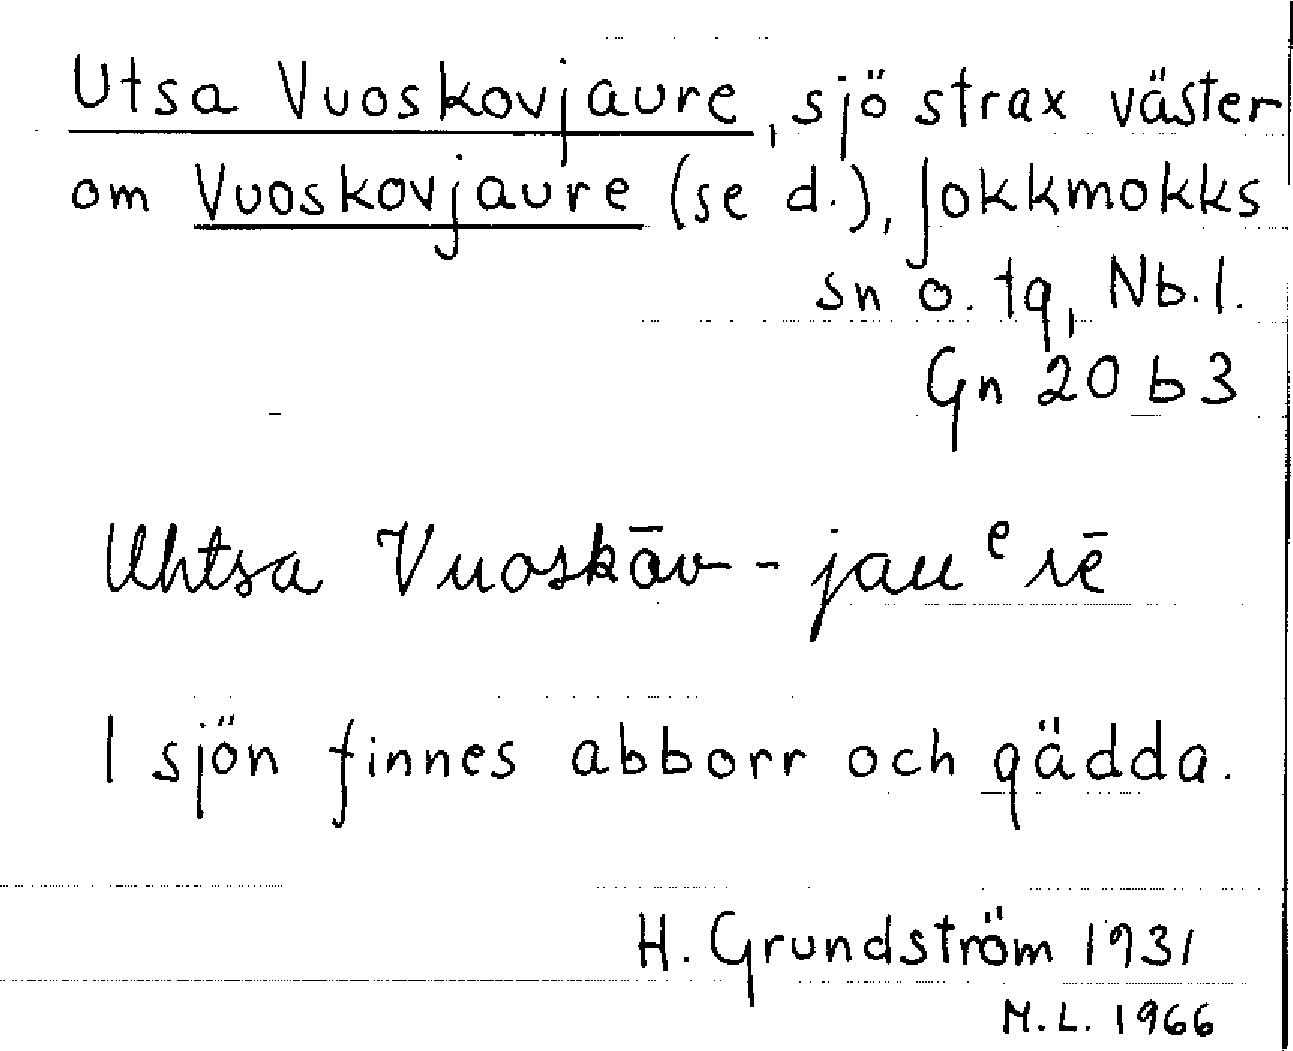 Utsa Vuoskovjaure, sjö strax väster
om Vuoskovjaure (se d.), Jokkmokks
sn o. tg, Nb.l.
Gn 20 b 3
Uhtsa Vuoskāv-jauᵉrē
I sjön finnes abborr och gädda.
H. Grundström 1931
M.L. 1966